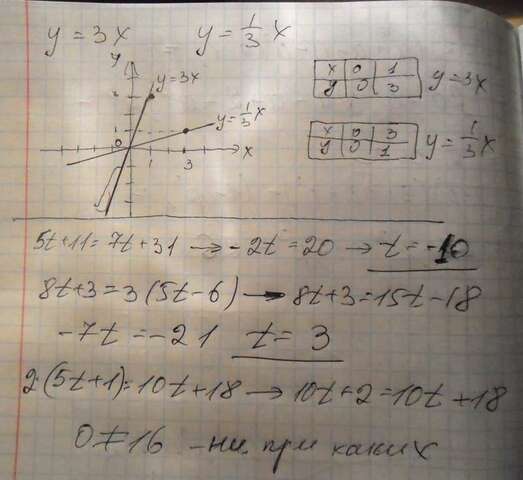 y = 3x   y = 1/3 x
y
y=3x
y=1/3 x
0
1
3
x
x 0 1
y 0 3
y=3x
x 0 3
y 0 1
y=1/3 x
5t+11=7t+31 → -2t=20 → t=-10
8t+3=3(5t-6) → 8t+3=15t-18
-7t=-21   t=3
2·(5t+1)=10t+18 → 10t+2=10t+18
0≠16 -ни при каких